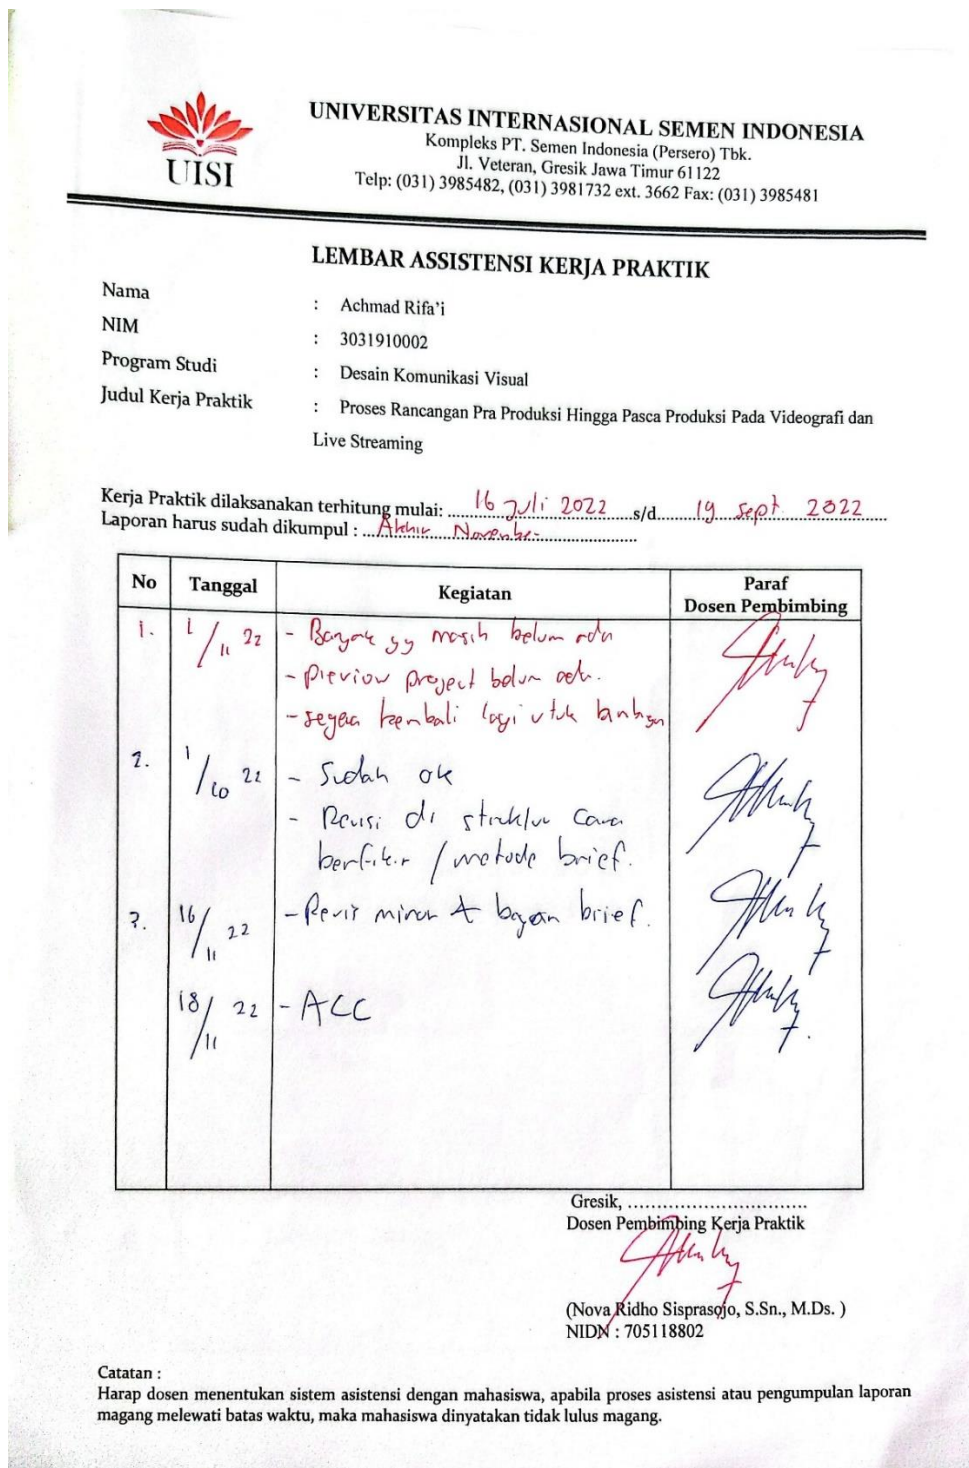 UISI
UNIVERSITAS INTERNASIONAL SEMEN INDONESIA
Kompleks PT. Semen Indonesia (Persero) Tbk.
Jl. Veteran, Gresik Jawa Timur 61122
Telp: (031) 3985482, (031) 3981732 ext. 3662 Fax: (031) 3985481
LEMBAR ASSISTENSI KERJA PRAKTIK
Nama : Achmad Rifa'i
NIM : 3031910002
Program Studi : Desain Komunikasi Visual
Judul Kerja Praktik : Proses Rancangan Pra Produksi Hingga Pasca Produksi Pada Videografi dan
Live Streaming
Kerja Praktik dilaksanakan terhitung mulai: 16 Juli 2022 s/d 19 Sept. 2022
Laporan harus sudah dikumpul : Akhir November
No Tanggal Kegiatan Paraf
Dosen Pembimbing
1. 1/11 22 - Banyak yg masih belum ada
- Previow project belum ada.
- segera kembali lagi utuk
2. 1/10 22 - Sudah ok
- Revisi di struktur cara
berfikir / metode brief.
3. 16/11 22 - Revisi minor bagan brief.
18/11 22 - ACC
Gresik, ..............................
Dosen Pembimbing Kerja Praktik
(Nova Ridho Sisprasojo, S.Sn., M.Ds. )
NIDN : 705118802
Catatan :
Harap dosen menentukan sistem asistensi dengan mahasiswa, apabila proses asistensi atau pengumpulan laporan
magang melewati batas waktu, maka mahasiswa dinyatakan tidak lulus magang.